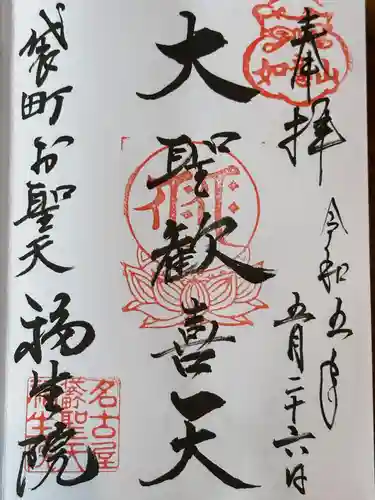 奉拝
令和五年
五月二十六日
如意山
大聖歓喜天
袋町お聖天
福生院
名古屋
袋町聖天
福生院